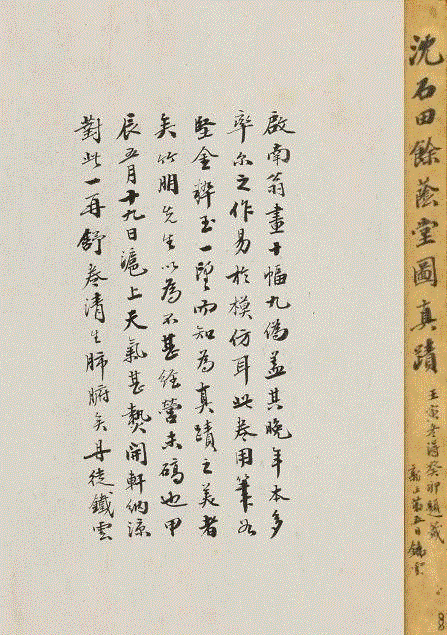 沈石田餘蔭堂圖真蹟
壬寅冬得癸卯題
新正第五日鐵雲
啟南翁畫十幅九偽蓋其晚年本多
率尔之作易於模仿耳此卷用筆如
堅金粹玉一望而知為真蹟之美者
矣竹朋先生以為不甚經營未碻也甲
辰五月十九日滬上天氣甚熱開軒納涼
對此一再舒卷清生肺腑矣丹徒鐵雲